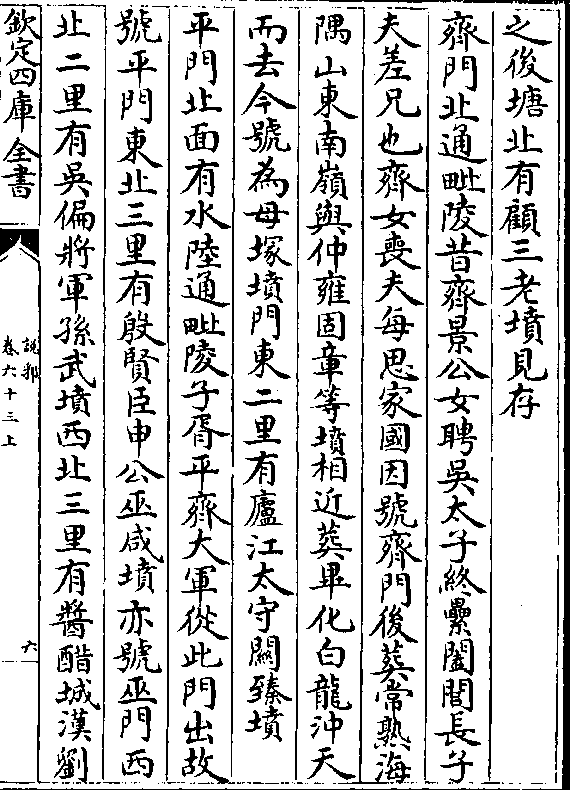 之後塘北有顧三老墳見存
齊門北通毗陵昔齊景公女聘吳太子終纍闔閭長子
夫差兄也齊女喪夫每思家國因號齊門後葬常熟海
隅山東南嶺與仲雍固章等墳相近葬畢化白龍沖天
而去今號為母塚墳門東二里有廬江太守闞臻墳
平門北面有水陸通毗陵子胥平齊大軍從此門出故
號平門東北三里有殷賢臣申公巫咸墳亦號巫門西
北二里有吳偏將軍孫武墳西北三里有醬醋城漢劉
欽定四庫全書
說郛
卷六十三上
六